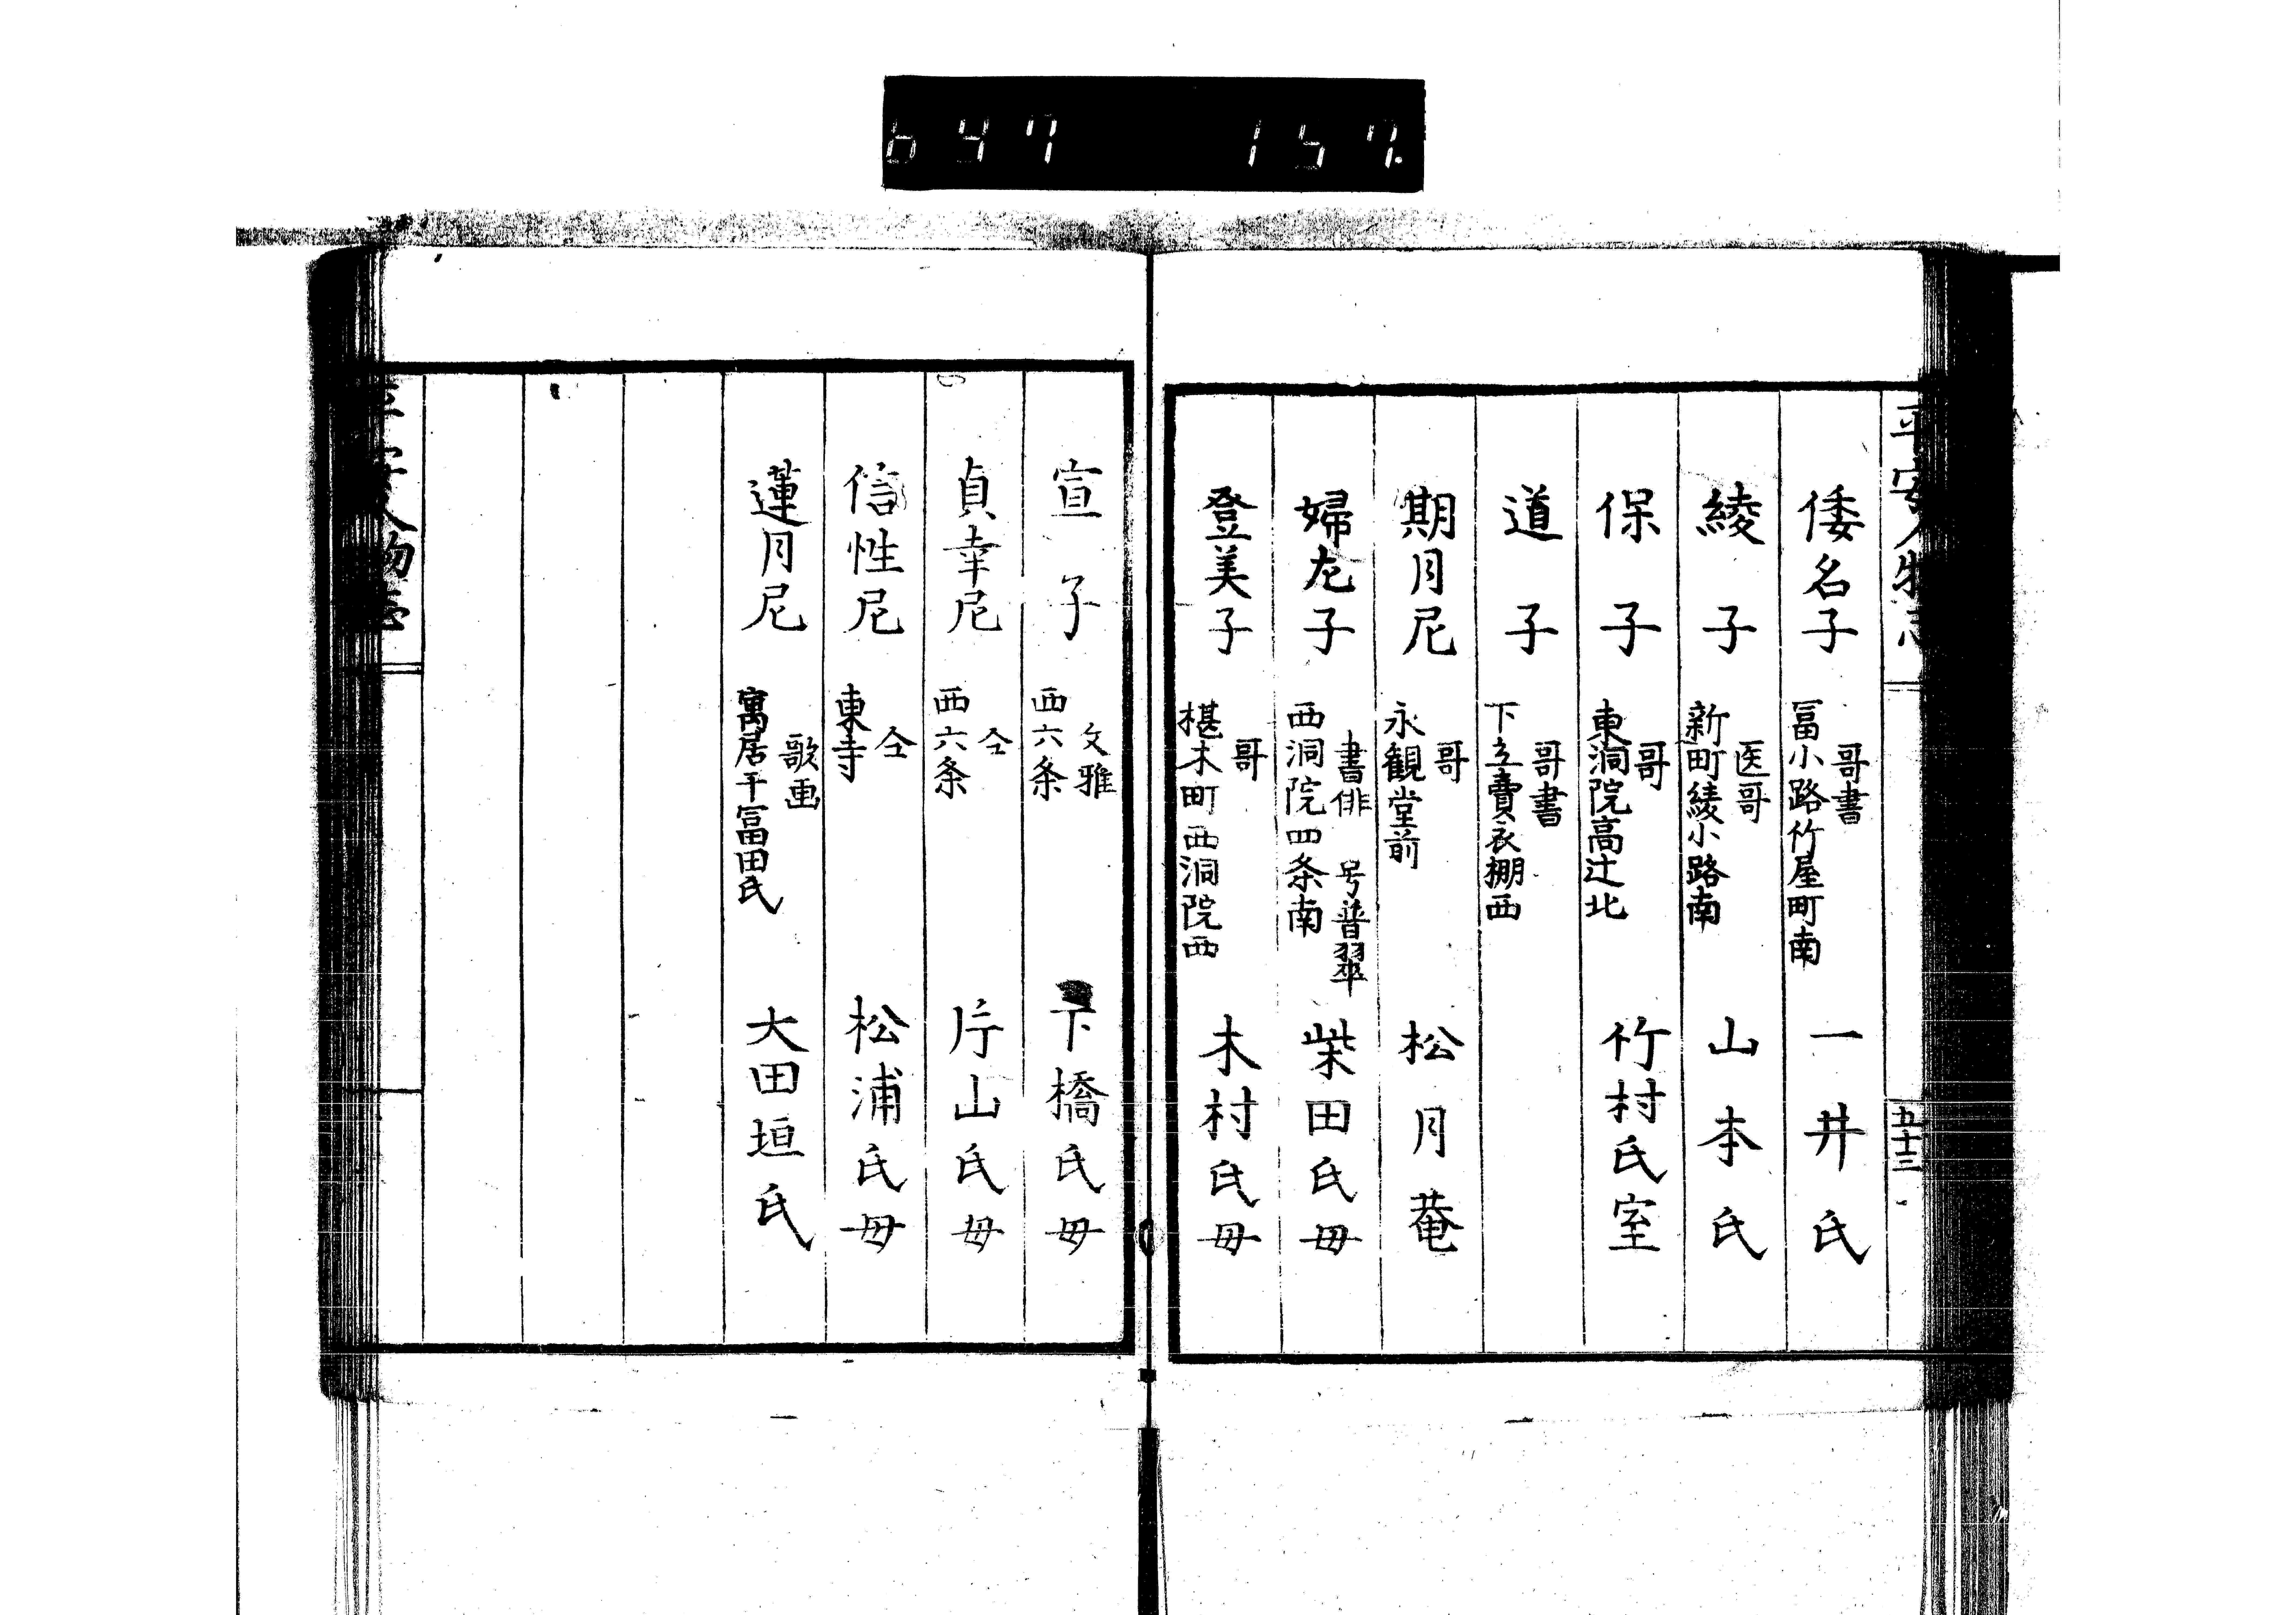 647 157.
平安人物志
五十三
倭名子 哥書 冨小路竹屋町南 一井氏
綾子 医哥 新町綾小路南 山本氏
保子 哥 東洞院高辻北 竹村氏室
道子 哥書 下立賣衣棚西
期月尼 哥 永観堂前 松月菴
婦左子 書俳 号普翠 西洞院四条南 柴田氏母
登美子 哥 椹木町西洞院西 木村氏母
宣子 文雅 西六条 下橋氏母
貞幸尼 仝 西六条 片山氏母
信性尼 仝 東寺 松浦氏母
蓮月尼 歌画 寓居于冨田氏 大田垣氏
平安人物志